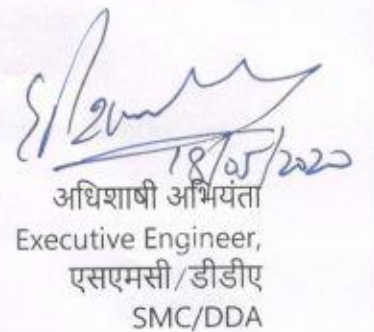 18/05/2020
अधिशाषी अभियंता
Executive Engineer,
एसएमसी/डीडीए
SMC/DDA